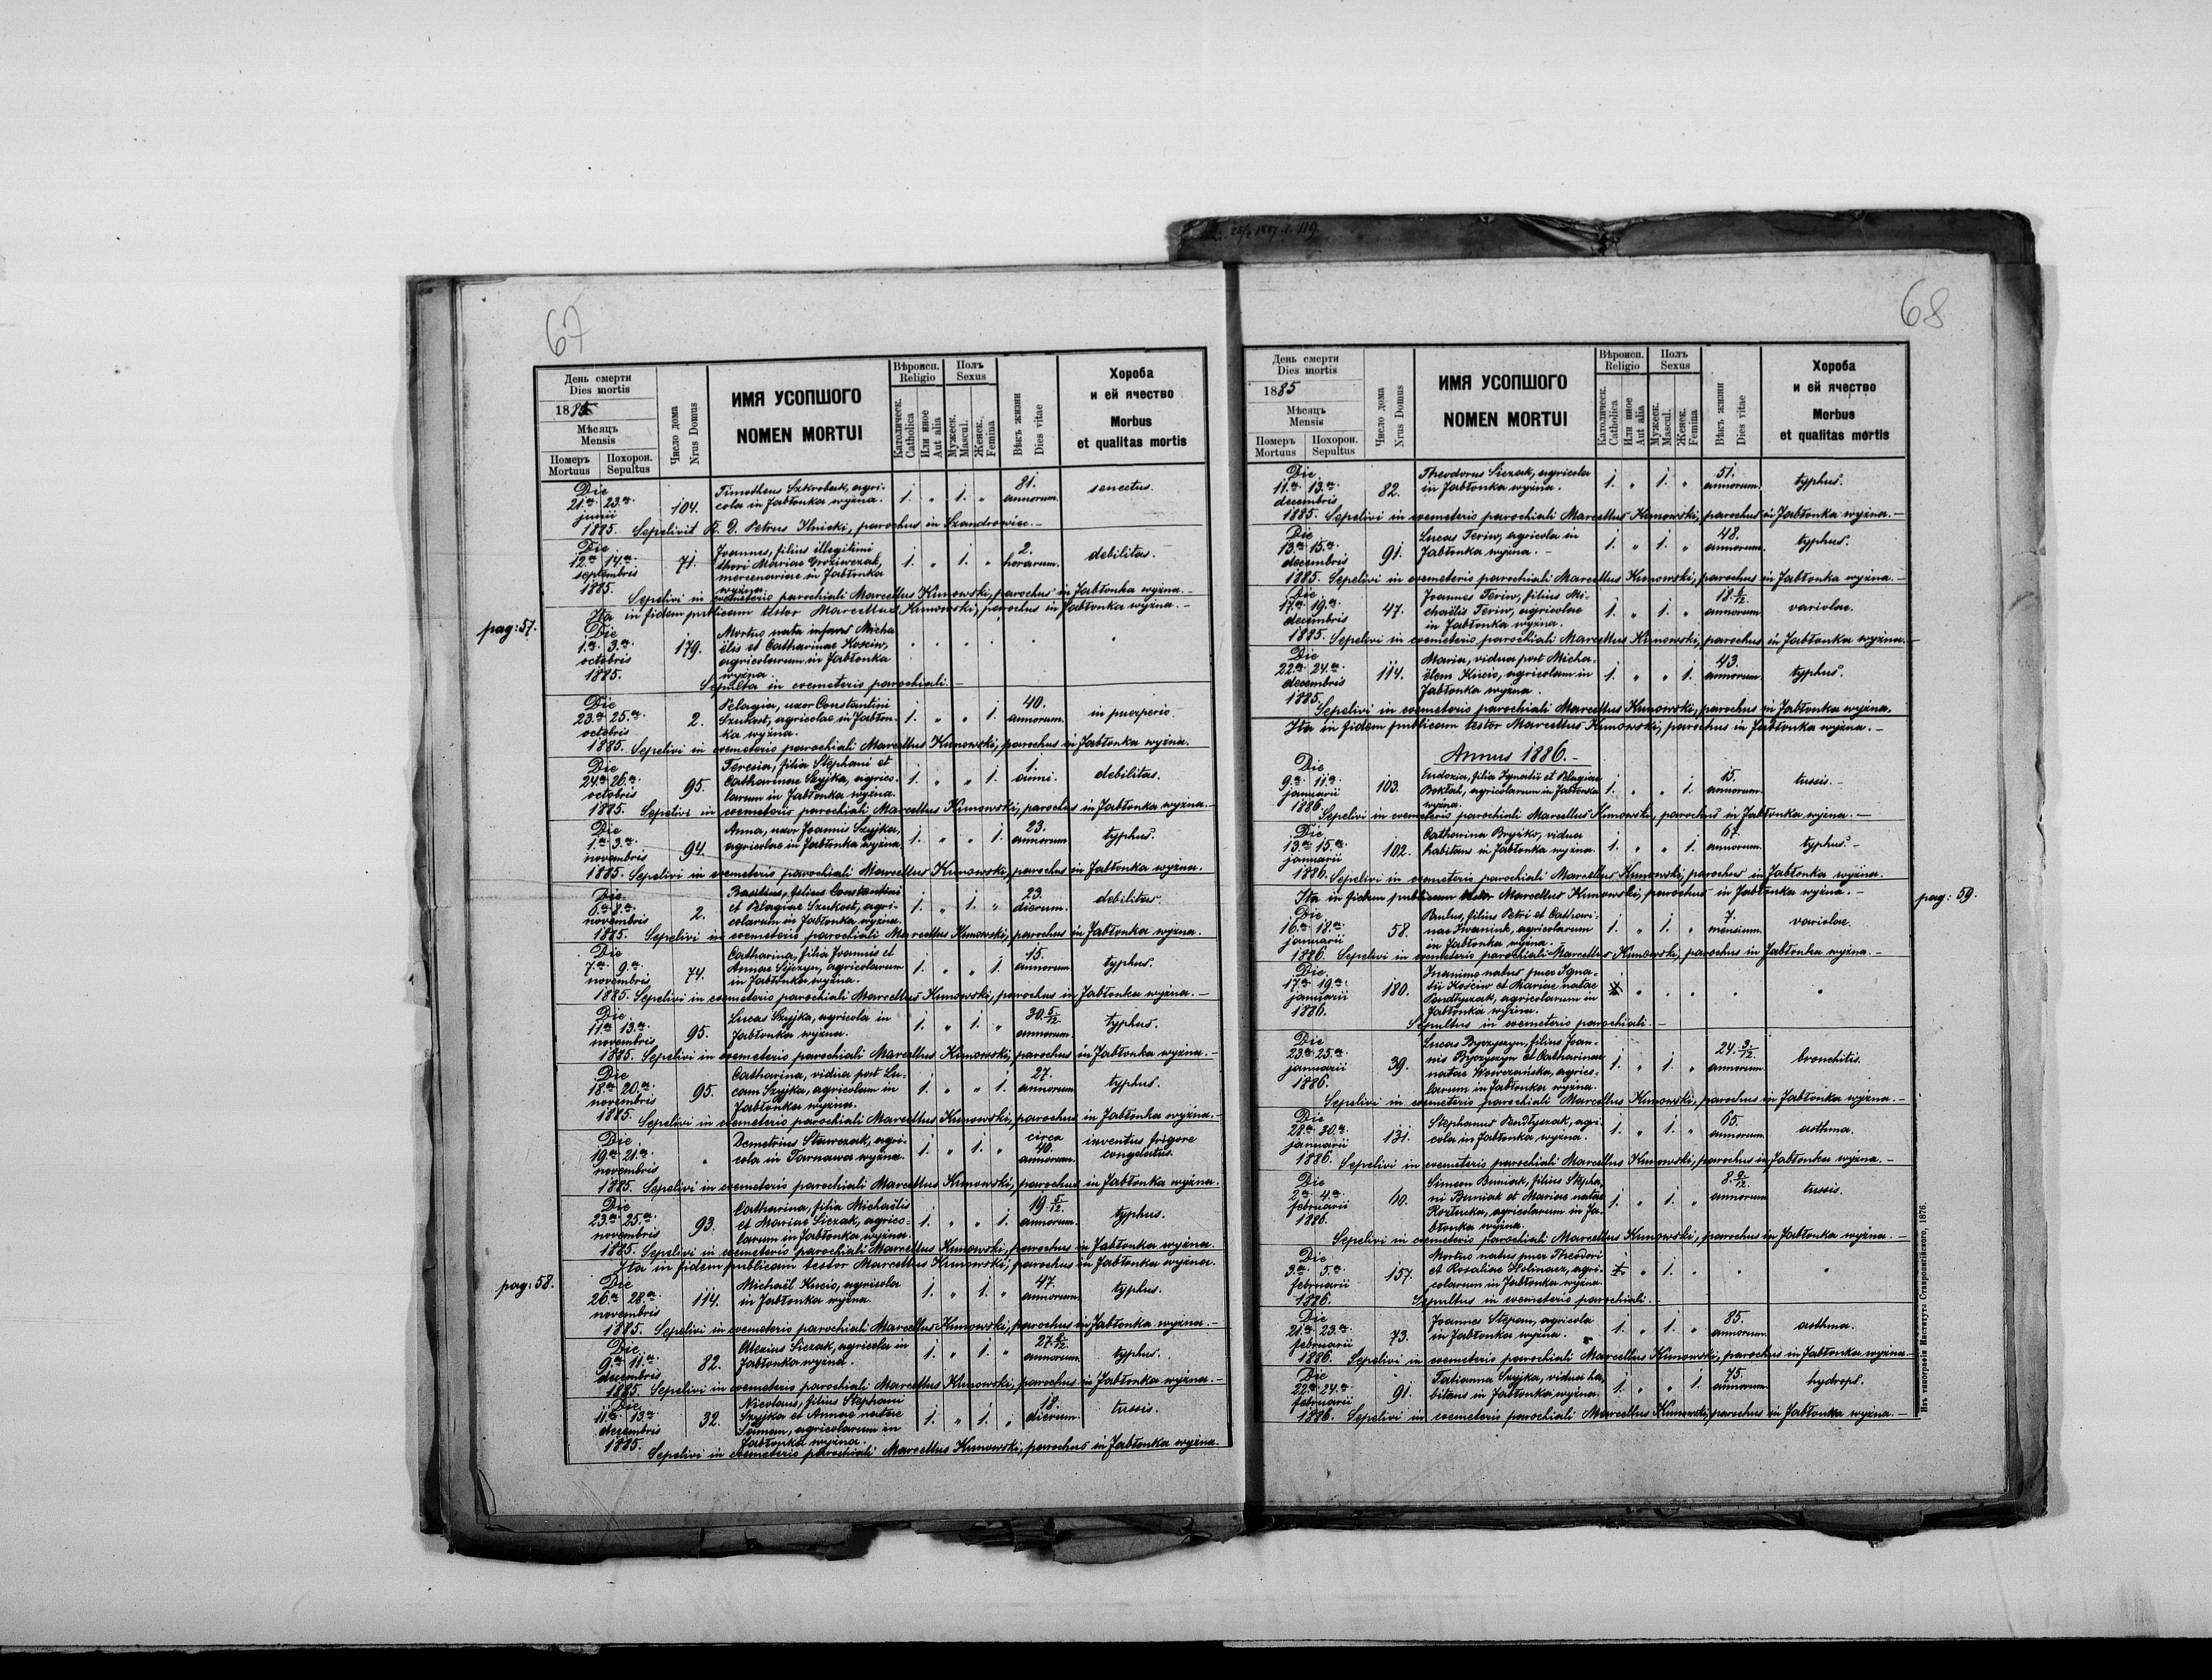 67
День смерти
Dies mortis
1885
Мѣсяць
Mensis
Померъ
Mortuus
Похорон.
Sepultus
Число дома
Nrus Domus
ИМЯ УСОПШОГО
NOMEN MORTUI
Вѣроисп.
Religio
Католическ.
Catholica
Или иное
Aut alia
Полъ
Sexus
Мужеск.
Mascul.
Женск.
Femina
Вѣкъ жизни
Dies vitae
Хороба
и ей ячество
Morbus
et qualitas mortis
Die 21.a 23.a junii 104. Timotheus Szkrobak, agri- 1. „ 1. „ 81. annorum. senectus.
cola in Jabłonka wyżna.
1885. Sepelivit R. D. Petrus Ilnicki, parochus in Szandrowiec.
Die 12.a 14.a septembris 71. Joannes, filius illegitimi 1. „ 1. „ 2. horarum. debilitas.
thori Mariae
mercenariae in Jabłonka
wyżna.
1885. Sepelivi in coemeterio parochiali Marcellus Kunowski, parochus in Jabłonka wyżna.
Ita in fidem publicam testor Marcellus Kunowski, parochus in Jabłonka wyżna.
pag: 57.
Die 1.a 3.a octobris 179. Mortuo nata infans Micha
ëlis et Catharinae Kościw,
agricolarum in Jabłonka
wyżna.
1885. Sepulta in coemeterio parochiali.
Die 23.a 25.a octobris 2. Pelagia, uxor Constantini 1. „ „ 1. 40. annorum. in puerperio.
Szukost, agricolae in Jabłon-
ka wyżna.
1885. Sepelivi in coemeterio parochiali Marcellus Kunowski, parochus in Jabłonka wyżna.
Die 24.a 26.a octobris 95. Teresia, filia Stephani et 1. „ „ 1. 1. anni. debilitas.
Catharinae Szyjka, agrico-
larum in Jabłonka wyżna.
1885. Sepelivi in coemeterio parochiali Marcellus Kunowski, parochus in Jabłonka wyżna.
Die 1.a 3.a novembris 94. Anna, uxor Joannis Szyjka, 1. „ „ 1. 23. annorum. typhus.
agricolae in Jabłonka wyżna
1885. Sepelivi in coemeterio parochiali Marcellus Kunowski, parochus in Jabłonka wyżna.
Die 6.a 8.a novembris 2. Basilius, filius Constantini 1. „ 1. „ 23. dierum. debilitas.
et Pelagiae Szukost, agri-
colarum in Jabłonka wyżna.
1885. Sepelivi in coemeterio parochiali Marcellus Kunowski, parochus in Jabłonka wyżna.
Die 7.a 9.a novembris 74. Catharina, filia Joannis et 1. „ „ 1. 15. annorum. typhus.
Annae agricolarum
in Jabłonka wyżna.
1885. Sepelivi in coemeterio parochiali Marcellus Kunowski, parochus in Jabłonka wyżna.
Die 11.a 13.a novembris 95. Lucas Szyjka, agricola in 1. „ 1. „ 30. 5/12 annorum. typhus.
Jabłonka wyżna.
1885. Sepelivi in coemeterio parochiali Marcellus Kunowski, parochus in Jabłonka wyżna.
Die 18.a 20.a novembris 95. Catharina, vidua post Lu- 1. „ „ 1. 27. annorum. typhus.
cam Szyjka, agricolam in
Jabłonka wyżna.
1885. Sepelivi in coemeterio parochiali Marcellus Kunowski, parochus in Jabłonka wyżna.
Die 19.a 21.a novembris Demetrius Stawczak, agri- 1. „ 1. „ circa 40. annorum. inventus frigore
cola in Tarnawa wyżna. congelatus.
1885. Sepelivi in coemeterio parochiali Marcellus Kunowski, parochus in Jabłonka wyżna.
Die 23.a 25.a novembris 93. Catharina, filia Michaëlis 1. „ „ 1. 19. 5/12 annorum. typhus.
et Mariae Siczak, agrico-
larum in Jabłonka wyżna.
1885. Sepelivi in coemeterio parochiali Marcellus Kunowski, parochus in Jabłonka wyżna.
Ita in fidem publicam testor Marcellus Kunowski, parochus in Jabłonka wyżna.
pag: 58.
Die 26.a 28.a novembris 114. Michaël Kucio, agricola 1. „ 1. „ 47. annorum. typhus.
in Jabłonka wyżna.
1885. Sepelivi in coemeterio parochiali Marcellus Kunowski, parochus in Jabłonka wyżna.
Die 9.a 11.a decembris 82. Alexius Siczak, agricola in 1. „ 1. „ annorum. typhus.
Jabłonka wyżna.
1885. Sepelivi in coemeterio parochiali Marcellus Kunowski, parochus in Jabłonka wyżna.
Die 11.a 13.a decembris 32. Nicolaus, filius Stephani 1. „ 1. „ 18. dierum. tussis.
Szyjka et Annae natae
agricolarum in
Jabłonka wyżna.
1885. Sepelivi in coemeterio parochiali Marcellus Kunowski, parochus in Jabłonka wyżna.
25/2 1887 119.
68
День смерти
Dies mortis
1885
Мѣсяць
Mensis
Померъ
Mortuus
Похорон.
Sepultus
Число дома
Nrus Domus
ИМЯ УСОПШОГО
NOMEN MORTUI
Вѣроисп.
Religio
Католическ.
Catholica
Или иное
Aut alia
Полъ
Sexus
Мужеск.
Mascul.
Женск.
Femina
Вѣкъ жизни
Dies vitae
Хороба
и ей ячество
Morbus
et qualitas mortis
Die 11.a 13.a decembris 82. Theodorus Siczak, agricola 1. „ 1. „ 51. annorum. typhus.
in Jabłonka wyżna.
1885. Sepelivi in coemeterio parochiali Marcellus Kunowski, parochus in Jabłonka wyżna.
Die 13.a 15.a decembris 91. Lucas Teriw, agricola in 1. „ 1. „ 48. annorum. typhus.
Jabłonka wyżna.
1885. Sepelivi in coemeterio parochiali Marcellus Kunowski, parochus in Jabłonka wyżna.
Die 17.a 19.a decembris 47. Joannes Teriw, filius Mi- 1. „ 1. „ annorum. variolae.
chaëlis Teriw, agricolae
in Jabłonka wyżna.
1885. Sepelivi in coemeterio parochiali Marcellus Kunowski, parochus in Jabłonka wyżna.
Die 22.a 24.a decembris 114. Maria, vidua post Micha- 1. „ „ 1. 43. annorum. typhus.
ëlem Kucio, agricolam in
Jabłonka wyżna.
1885. Sepelivi in coemeterio parochiali Marcellus Kunowski, parochus in Jabłonka wyżna.
Ita in fidem publicam testor Marcellus Kunowski, parochus in Jabłonka wyżna.
Annus 1886.
Die 9.a 11.a januarii 103. Eudoxia, filia Ignatii et Pelagiae 1. „ „ 1. 15. annorum. tussis.
agricolarum in Jabłonka
wyżna.
1886. Sepelivi in coemeterio parochiali Marcellus Kunowski, parochus in Jabłonka wyżna.
Die 13.a 15.a januarii 102. Catharina Bryśko, vidua 1. „ „ 1. 67. annorum. typhus.
habitans in Jabłonka wyżna.
1886. Sepelivi in coemeterio parochiali Marcellus Kunowski, parochus in Jabłonka wyżna.
Ita in fidem publicam testor Marcellus Kunowski, parochus in Jabłonka wyżna.
pag: 59.
Die 16.a 18.a januarii 58. Paulus, filius Petri et Cathari- 1. „ 1. „ 7. mensium. variolae.
nae Iwaniuk, agricolarum
in Jabłonka wyżna.
1886. Sepelivi in coemeterio parochiali Marcellus Kunowski, parochus in Jabłonka wyżna.
Die 17.a 19.a januarii 180. Inanimo natus puer Igna-
tii Kościw et Mariae natae
Pendłyszak, agricolarum in
Jabłonka wyżna.
1886. Sepultus in coemeterio parochiali.
Die 23.a 25.a januarii 39. Lucas Byczyszyn, filius Joan- 1. „ 1. „ 24. 3/12 annorum. bronchitis.
nis Byczyszyn et Catharinae
natae agrico-
larum in Jabłonka wyżna.
1886. Sepelivi in coemeterio parochiali Marcellus Kunowski, parochus in Jabłonka wyżna.
Die 28.a 30.a januarii 131. Stephanus Pendłyszak, agri- 1. „ 1. „ 65. annorum. asthma.
cola in Jabłonka wyżna.
1886. Sepelivi in coemeterio parochiali Marcellus Kunowski, parochus in Jabłonka wyżna.
Die 2.a 4.a februarii 60. Simeon Buniak, filius Stepha- 1. „ 1. „ 8. 9/12 annorum. tussis.
ni Buniak et Mariae natae
Roztucka, agricolarum in Ja-
błonka wyżna.
1886. Sepelivi in coemeterio parochiali Marcellus Kunowski, parochus in Jabłonka wyżna.
Die 3.a 5.a februarii 157. Mortuo natus puer Theodori „ 1. „
et Rosaliae Holinacz, agri-
colarum in Jabłonka wyżna.
1886. Sepultus in coemeterio parochiali.
Die 21.a 23.a februarii 73. Joannes Stepan, agricola 1. „ 1. „ 85. annorum. asthma.
in Jabłonka wyżna.
1886. Sepelivi in coemeterio parochiali Marcellus Kunowski, parochus in Jabłonka wyżna.
Die 22.a 24.a februarii 91. Tatianna Szyjka, vidua ha- 1. „ „ 1. 75. annorum. hydrops.
bitans in Jabłonka wyżna.
1886. Sepelivi in coemeterio parochiali Marcellus Kunowski, parochus in Jabłonka wyżna.
Изъ типографіи Института Ставропигійского, 1876.